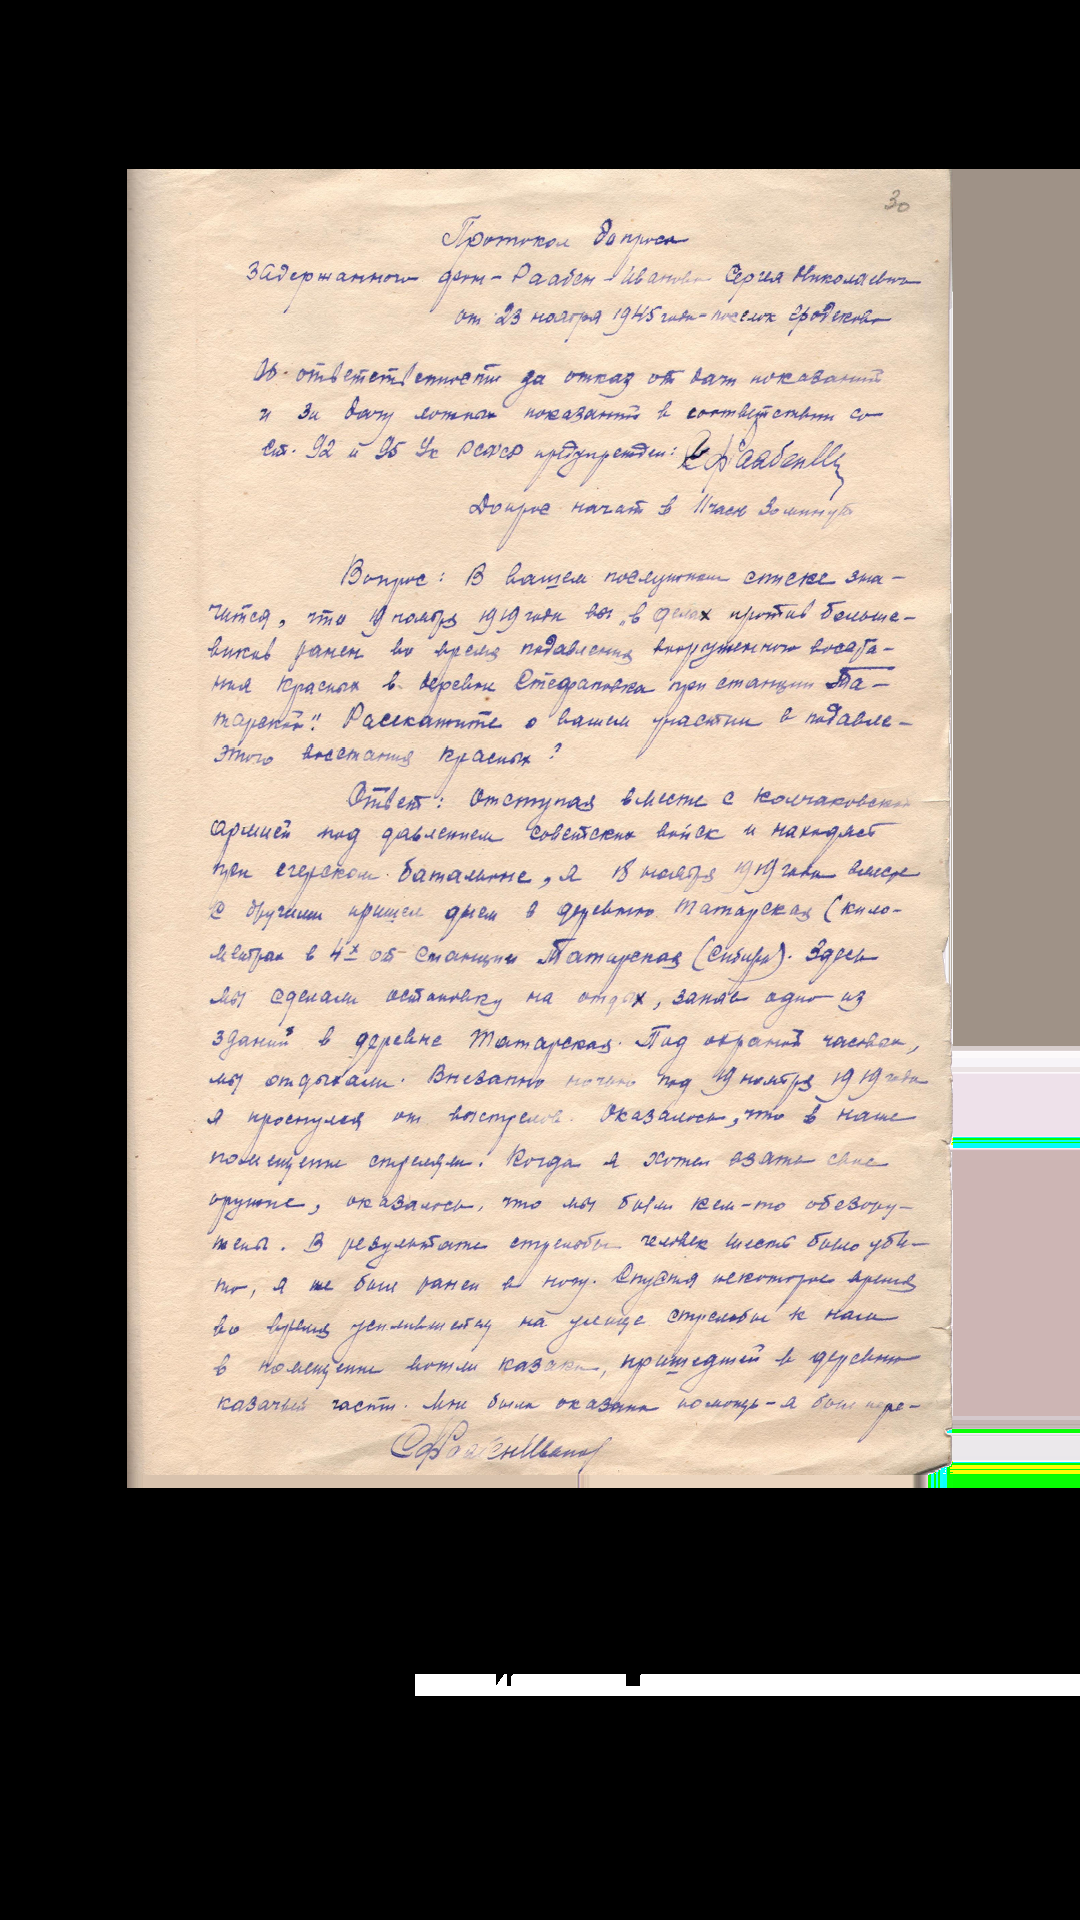 30
Протокол допроса
Задержанного фон-Раабен-Иванова Сергея Николаевича
от 23 ноября 1945 года - поселок Гродеково
Об ответственности за отказ от дачи показаний
и за дачу ложных показаний в соответствии со
ст. 92 и 95 Ук РСФСР предупрежден:
Допрос начат в 11 часов 30 минут
Вопрос: В вашем послужном списке зна-
чится, что 19 ноября 1919 года вы „в делах против больше-
виков ранен во время подавления вооруженного восста-
ния красных в деревни Стефановка при станции Та-
тарской". Расскажите о вашем участии в подавле-
этого восстания красных?
Ответ: Отступая вместе с колчаковской
армией под давлением советских войск и находясь
при егерском батальоне, я 18 ноября 1919 года вместе
с другими пришел днем в деревню Татарская (кило-
метрах в 4х от станции Татарская (Сибирь). Здесь
мы сделали остановку на отдых, заняв одно из
зданий в деревне Татарская. Под охраной часовых,
мы отдыхали. Внезапно ночью под 19 ноября 1919 года
я проснулся от выстрелов. Оказалось, что в наше
помещение стреляли. Когда я хотел взять свое
оружие, оказалось, что мы были кем-то обезору-
жены. В результате стрельбы человек шесть было уби-
то, я же был ранен в ногу. Спустя некоторое время
во время усилившейся на улице стрельбы к нам
в помещение вошли казаки, пришедшей в деревню
казачьей части. Мне была оказана помощь - я был пере-